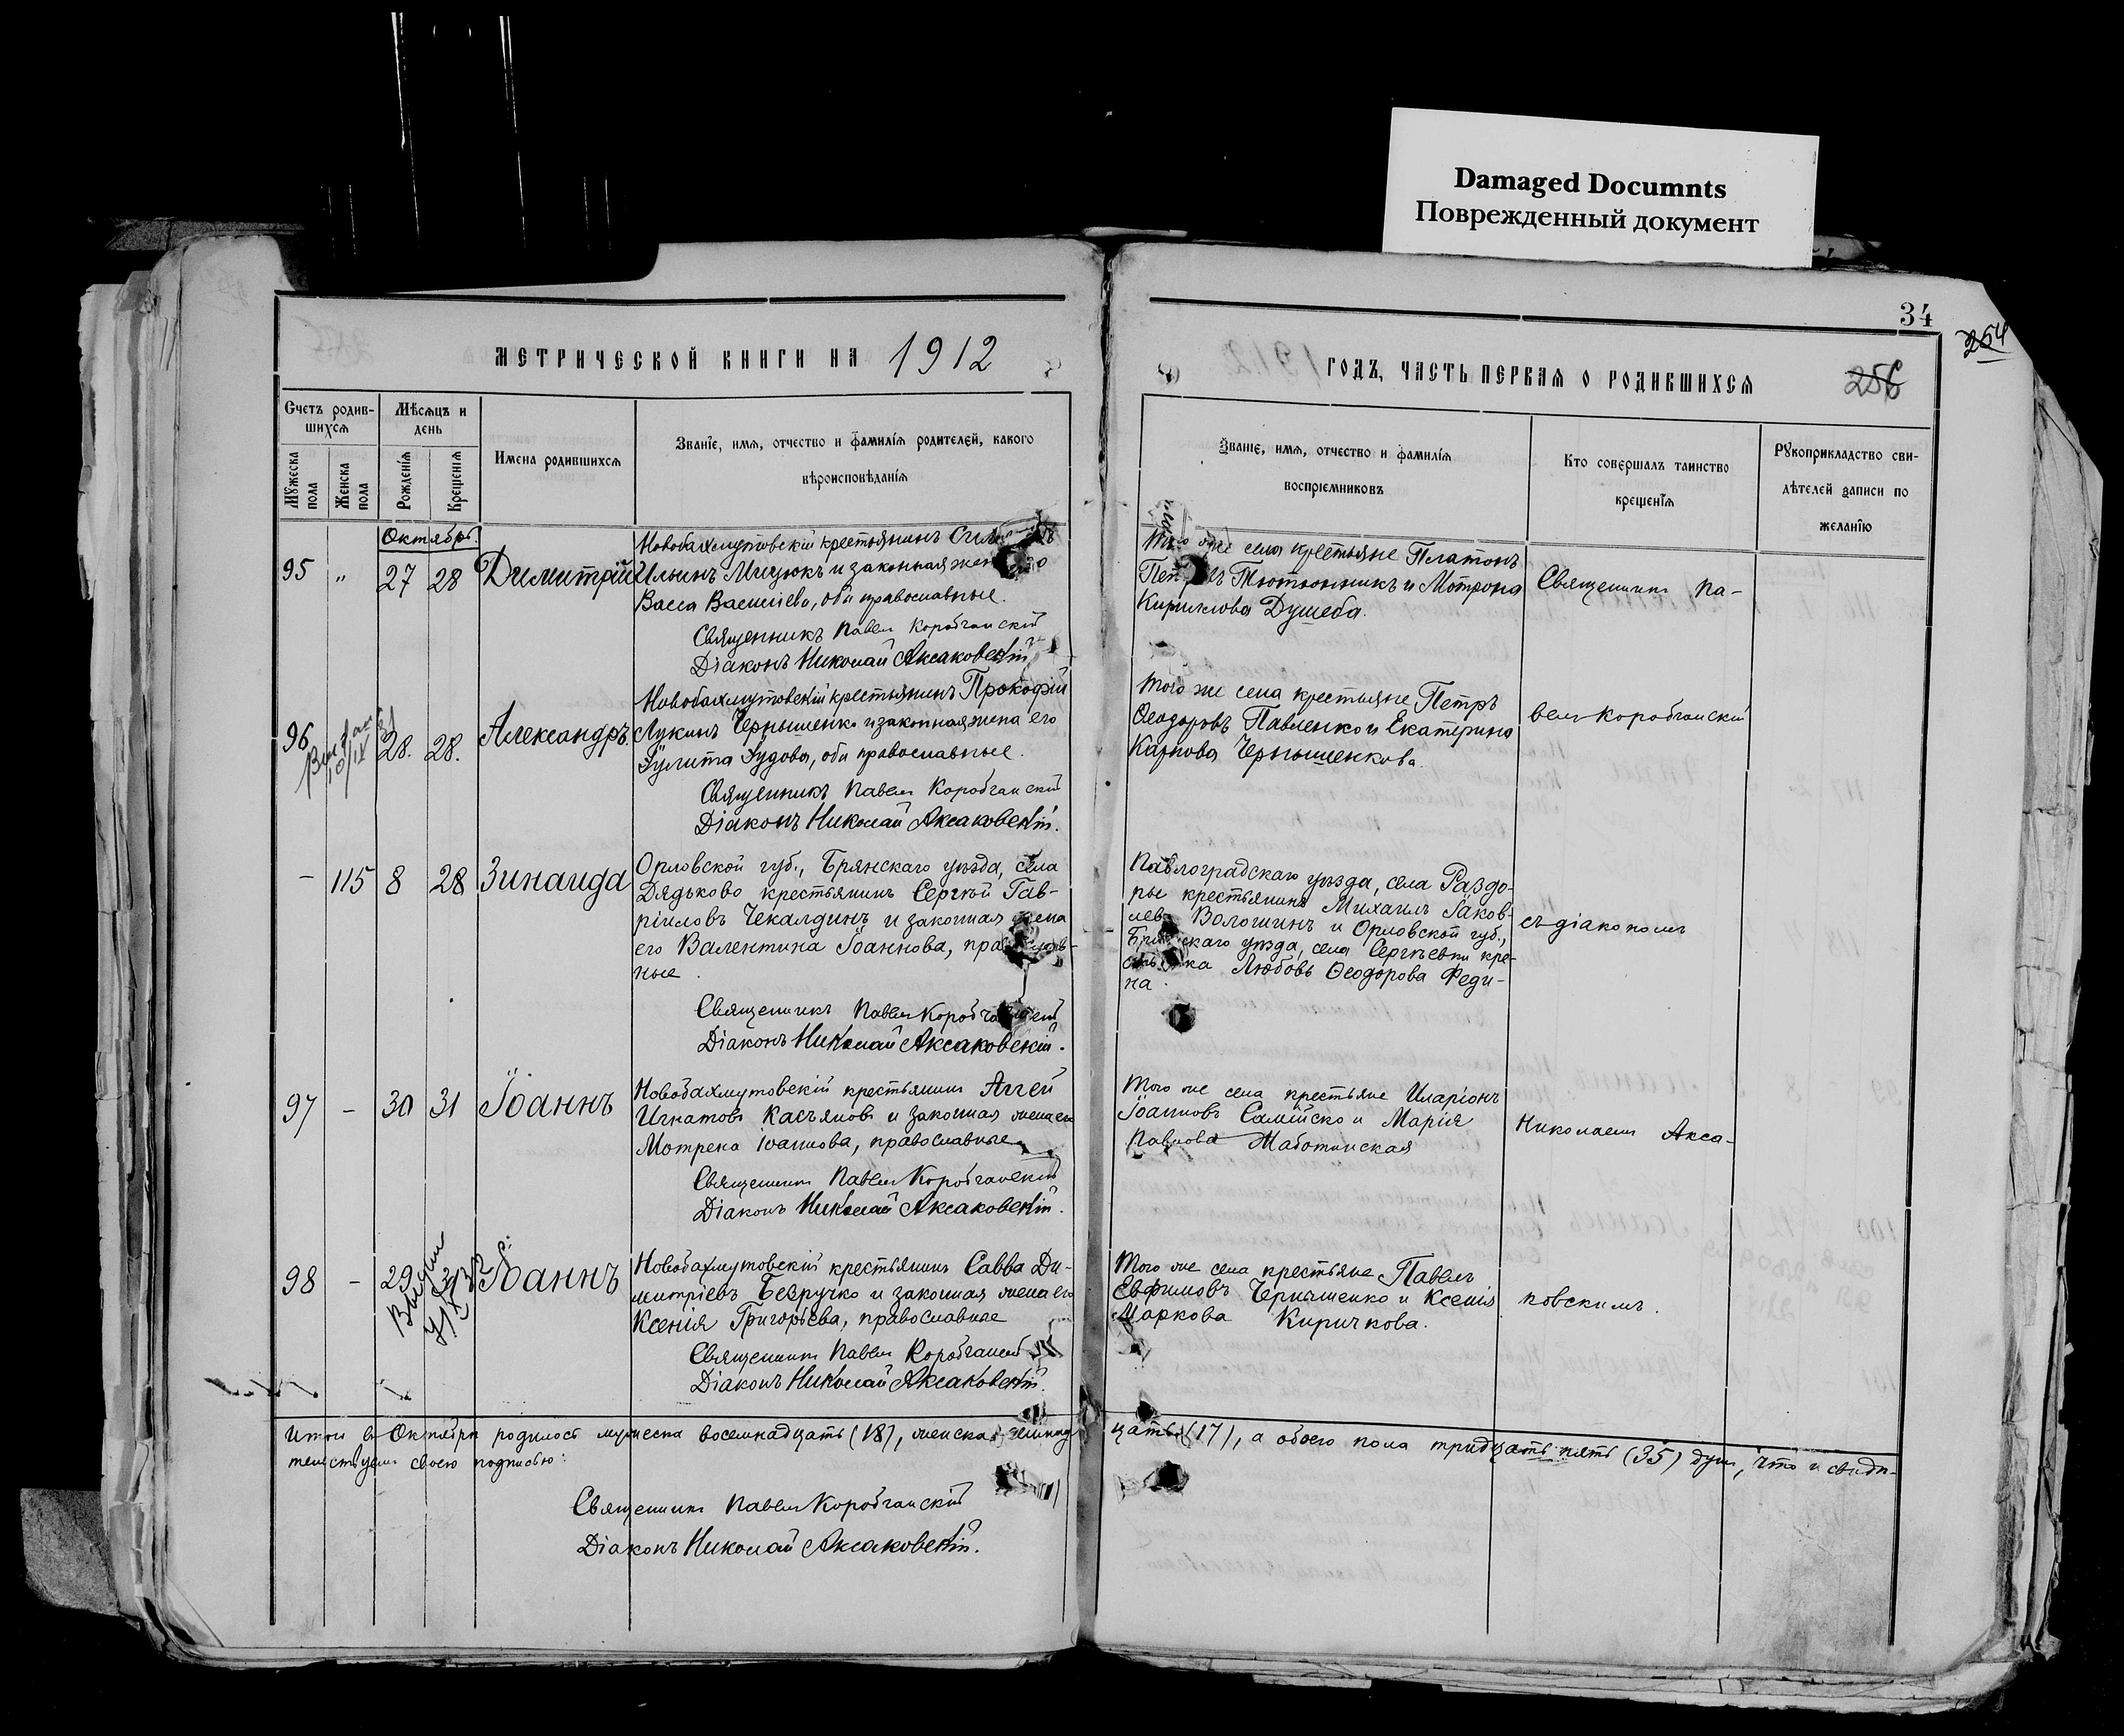 Damaged Documnts
Поврежденный документ
34
254
256
МЕТРИЧЕСКОЙ КНИГИ НА 1912
ГОДЪ, ЧАСТЬ ПЕРВАЯ О РОДИВШИХСЯ
Счетъ родив-
шихся
Мужеска
пола
Женска
пола
Мѣсяцъ и
день
Рожденія
Крещенія
Имена родившихся
Званіе, имя, отчество и фамилія родителей, какого
вѣроисповѣданія
Званіе, имя, отчество и фамилія
воспріемниковъ
Кто совершалъ таинство
крещенія
Рукоприкладство сви-
дѣтелей записи по
желанію
Октябрь.
95 " 27 28 Димитрій
Новобахмутовскій крестьянинъ
Ильинъ Мисюкъ и законная
Васса Васильева, оба православные.
Священникъ Павелъ Коробчанскій
Діаконъ Николай Аксаковскій
Того же села крестьяне Платонъ
Тютюнникъ и Мотрона
Кириллова Душеба.
Священникъ Па-
96 28. 28. Александръ.
Новобахмутовскій крестьянинъ Прокофій
Лукинъ Чернышенко и законная жена его
Іулита Іудова, оба православные.
Священникъ Павелъ Коробчанскій
Діаконъ Николай Аксаковскій.
Того же села крестьяне Петръ
Ѳеодоровъ Павленко и Екатерина
Карпова Чернышенкова.
велъ Коробчанскій
- 115 8 28 Зинаида
Орловской губ., Брянскаго уѣзда, села
Дядьково крестьянинъ Сергѣй Гав-
ріиловъ Чекалдинъ и законная жена
его Валентина Іоаннова, православ-
ные.
Священникъ Павелъ Коробчанскій
Діаконъ Николай Аксаковскій.
Павлоградскаго уѣзда, села Раздо-
ры крестьянинъ Михаилъ Іаков-
левъ Волошинъ и Орловской губ.,
Брянскаго уѣзда, села Сергѣевки кре-
Любовь Ѳеодорова Феди-
на.
съ діакономъ
97 - 30 31 Іоаннъ
Новобахмутовскій крестьянинъ Аггей
Игнатовъ Касьяновъ и законная жена его
Мотрена Іоаннова, православные
Священникъ Павелъ Коробчанскій
Діаконъ Николай Аксаковскій.
Того же села крестьяне Иларіонъ
Іоанновъ Самійско и Марія
Павлова Жаботинская
Николаемъ Акса-
98 - 29 Іоаннъ
Новобахмутовскій крестьянинъ Савва Ди-
митріевъ Безручко и законная жена его
Ксенія Григорьева, православные
Священникъ Павелъ Коробчанскій
Діаконъ Николай Аксаковскій.
Того же села крестьяне Павелъ
Евфимовъ Чернышенко и Ксенія
Маркова Киричкова.
ковскимъ.
Итого въ Октябрѣ родилось мужеска восемнадцать (18), женска семнад
цать (17), а обоего пола тридцать пять (35) душъ, что и свидѣ-
тельствуемъ своею подписью:
Священникъ Павелъ Коробчанскій
Діаконъ Николай Аксаковскій.